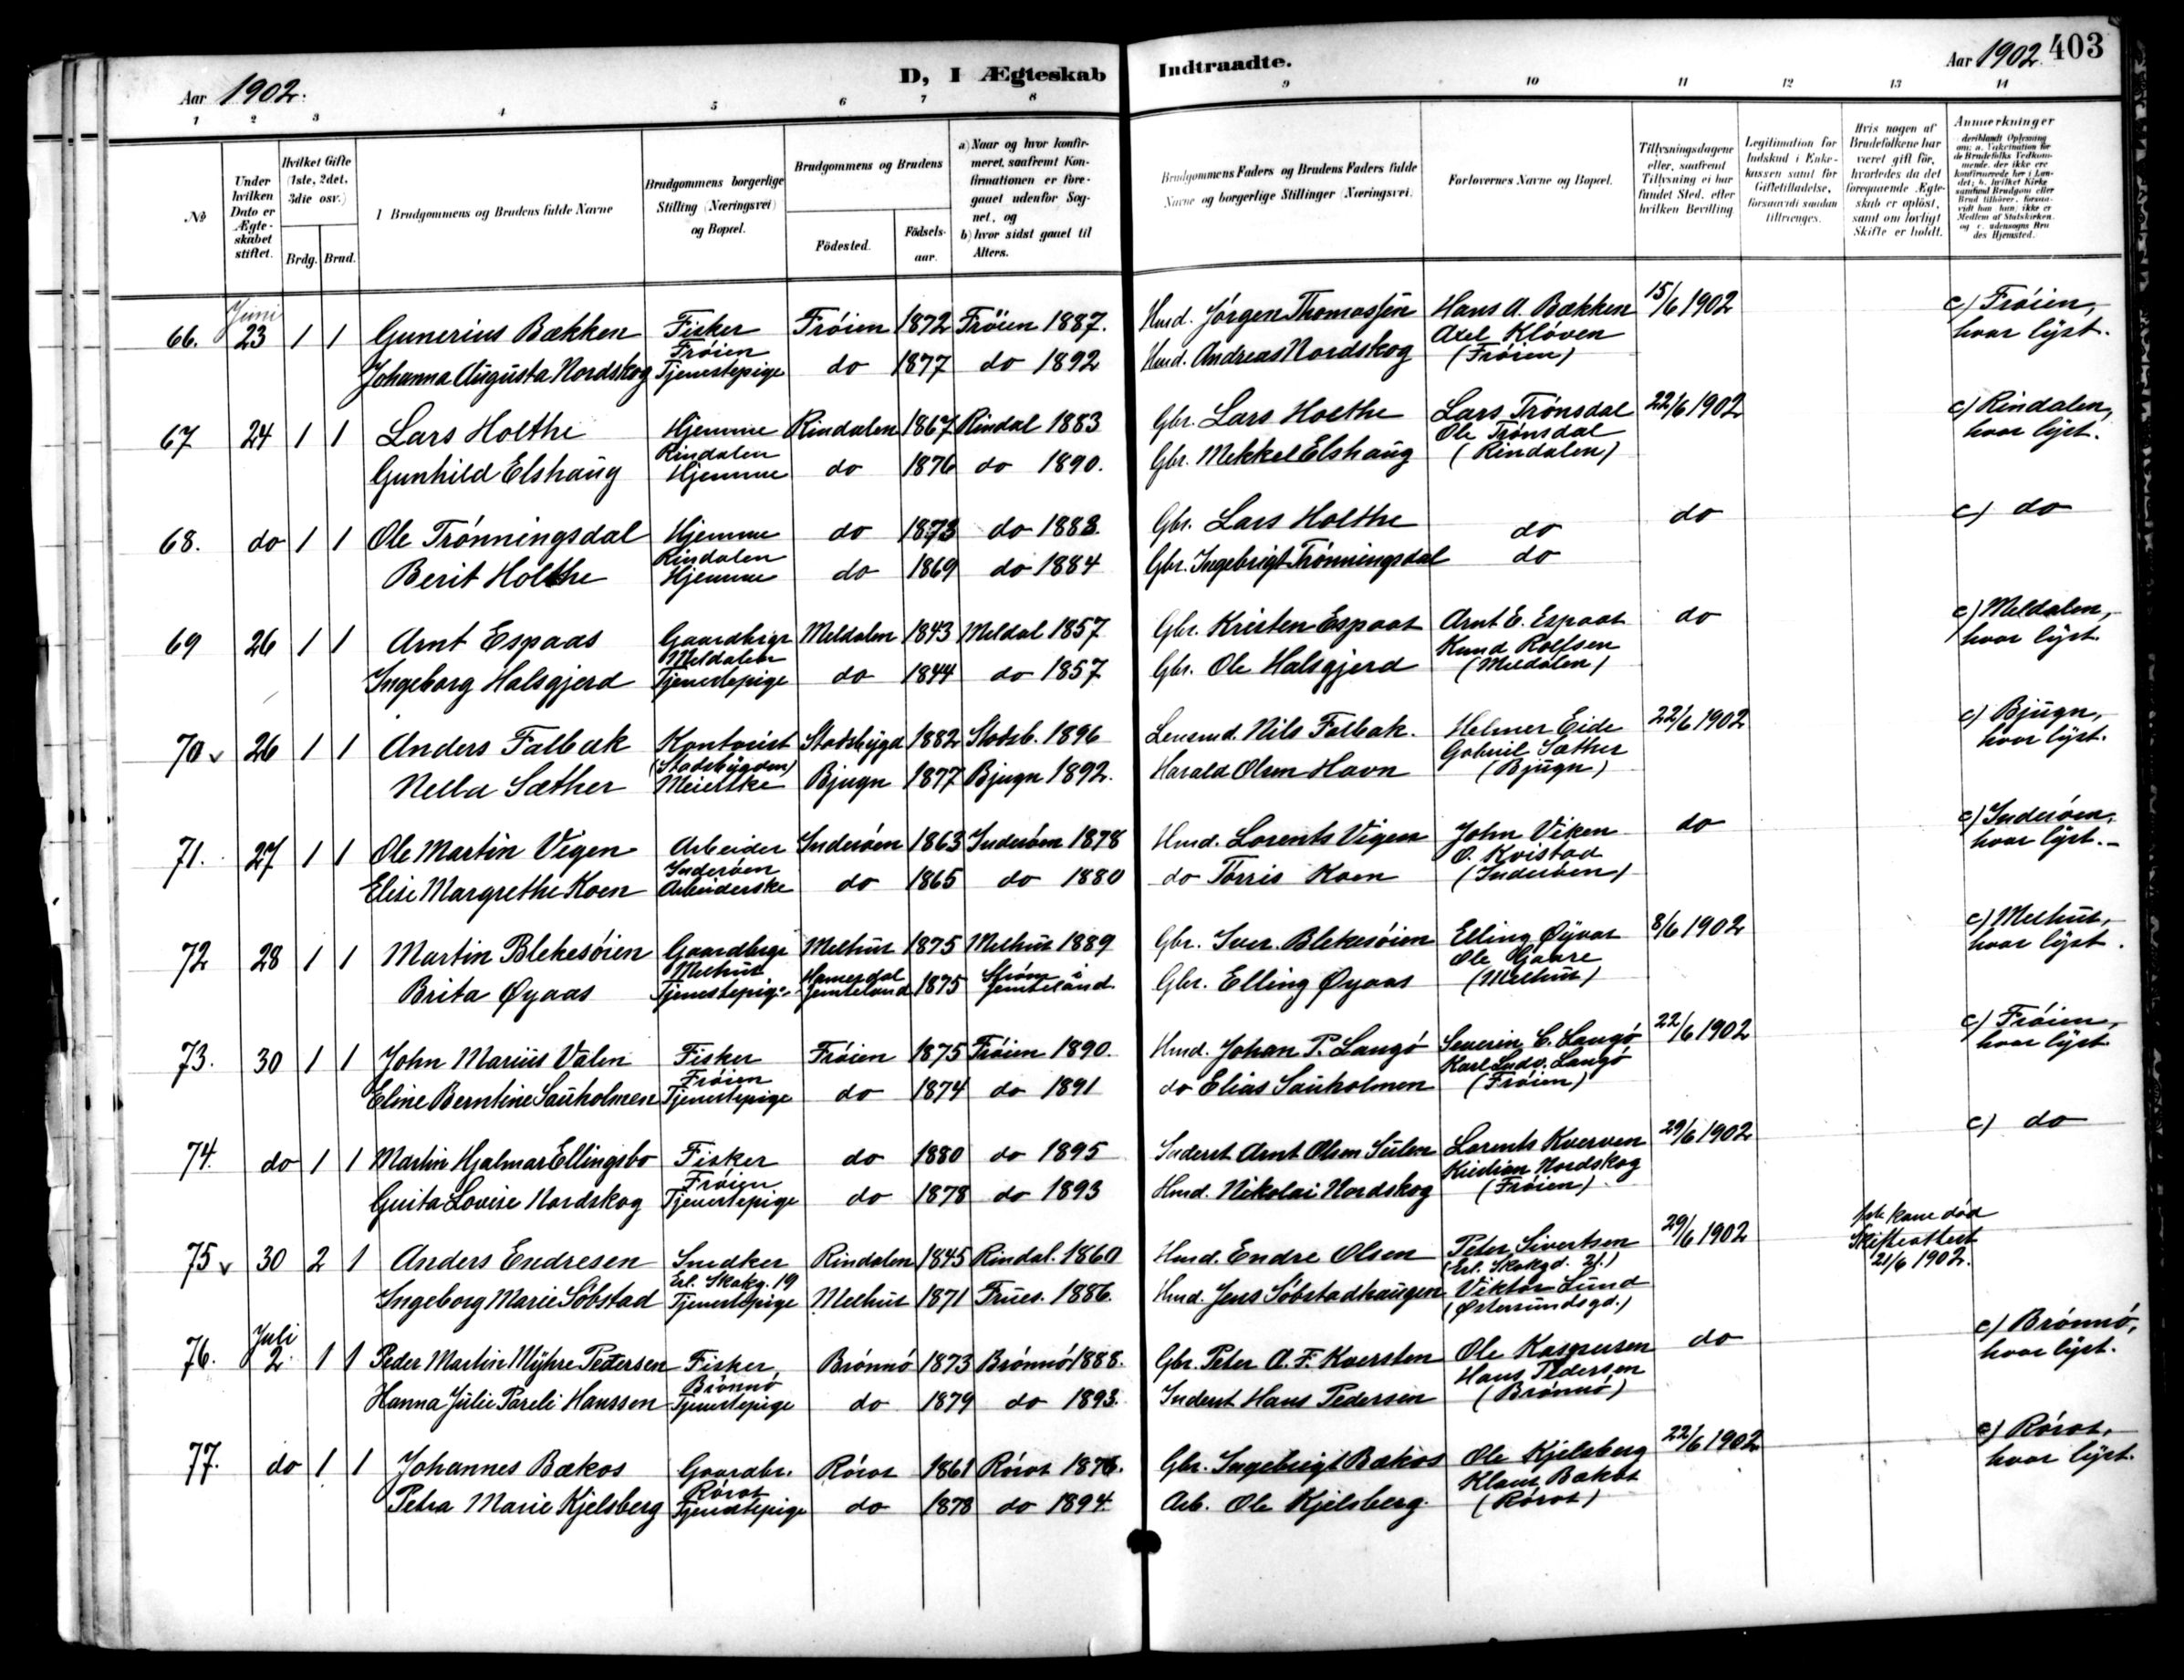 Aar 1902.
D, I Ægteskab
Indtraadte.
Aar 1902. 403
1 2 3 4 5 6 7 8 9 10 11 12 13 14
No
Under hvilken Dato er Ægteskabet stiftet.
Hvilket Gifte (1ste, 2det, 3die osv.)
Brdg. Brud.
Brudgommens og Brudens fulde Navne
Brudgommens borgerlige Stilling (Næringsvei) og Bopæl.
Brudgommens og Brudens
Födested.
Födselsaar.
a) Naar og hvor konfirmeret, saafremt Konfirmationen er foregaaet udenfor Sognet, og
b) hvor sidst gaaet til Alters.
Brudgommens Faders og Brudens Faders fulde Navne og borgerlige Stillinger (Næringsvei.
Forlovernes Navne og Bopæl.
Tillysningsdagene eller, saafremt Tillysning ei har fundet Sted, efter hvilken Bevilling
Legitimation for Indskud i Enkekassen samt for Giftetilladelse, forsaavidt saadan tiltrænges.
Hvis nogen af Brudefolkene har været gift för, hvorledes da det foregaaende Ægteskab er oplöst, samt om lovligt Skifte er holdt.
Anmærkninger
Juni
66. 23 1 1 Gunerius Bækken Fisker Frøien 1872 Frøien 1887. Hmd. Jørgen Thomassen Hans A. Bækken 15/6 1902 c) Frøien,
Frøien Axel Kløven hvor lyst.
Johanna Augusta Nordskog Tjenestepige do 1877 do 1892 Hmd. Andreas Nordskog (Frøien)
67 24 1 1 Lars Holthe Hjemme Rindalen 1867 Rindal 1883 Gbr. Lars Holthe Lars Trønsdal 22/6 1902 c) Rindalen,
Rindalen Ole Trønsdal hvor lyst.
Gunhild Elshaug Hjemme do 1876 do 1890. Gbr. Mekkel Elshaug (Rindalen)
68. do 1 1 Ole Trønningsdal Hjemme do 1873 do 1888. Gbr. Lars Holthe do do c) do
Rindalen
Berit Holthe Hjemme do 1869 do 1884 Gbr. Ingebrigt Trønningsdal do
69 26 1 1 Arnt Espaas Gaardbrgr Meldalen 1843 Meldal 1857 Gbr. Kristen Espaas Arnt E. Espaas do c) Meldalen,
Meldalen Knud Rolfsen hvor lyst.
Ingeborg Halsgjerd Tjenestepige do 1844 do 1857 Gbr. Ole Halsgjerd (Meldalen)
70 v 26 1 1 Anders Falbak Kontorist Stadsbygd 1882 Stadsb. 1896 Lensmd. Nils Falbak. Helmer Eide 22/6 1902 c) Bjugn,
(Stadsbygden) Gabriel Sæther hvor lyst.
Nella Sæther Meierske Bjugn 1877 Bjugn 1892. Harald Olsen Havn (Bjugn.)
71. 27 1 1 Ole Martin Vigen Arbeider Inderøen 1863 Inderøen 1878 Hmd. Lorents Vigen John Viken do c) Inderøen,
Inderøen O. Kvistad hvor lyst.
Elise Margrethe Koen Arbeiderske do 1865 do 1880 do Torris Koen (Inderøen)
72 28 1 1 Martin Blekesøien Gaardbrgr Melhus 1875 Melhus 1889 Gbr. Iver Blekesøien Elling Øyaas 8/6 1902 c) Melhus,
Melhus Hamerdal Strøm i Ole Gaare hvor lyst.
Brita Øyaas Tjenestepige Jemteland 1875 Jemteland. Gbr. Elling Øyaas (Melhus)
73. 30 1 1 John Marius Valen Fisker Frøien 1875 Frøien 1890. Hmd. Johan P. Langø Severin C. Langø 22/6 1902 c) Frøien,
Frøien Karl Ludv. Langø hvor lyst
Eline Berntine Sauholmen Tjenestepige do 1874 do 1891 do Elias Sauholmen (Frøien)
74. do 1 1 Martin Hjalmar Ellingsbo Fisker do 1880 do 1895 Inderst Arnt Olsen Sulen Lorents Kverven 29/6 1902 c) do
Frøien Kristian Nordskog
Gurita Lovise Nordskog Tjenestepige do 1878 do 1893 Hmd. Nikolai Nordskog (Frøien)
75 v 30 2 1 Anders Endresen Snedker Rindalen 1845 Rindal. 1860 Hmd. Endre Olsen Peter Sivertsen 29/6 1902 kone død
Erl. Skakg. 19 (Erl. Skakgd. 21.) Skifteattest
Ingeborg Marie Söbstad Tjenestepige Melhus 1871 Frues. 1886. Hmd. Jens Söbstadhaugen Viktor Lund 21/6 1902.
(Østersundsgd.)
Juli
76. 2. 1 1 Peder Martin Myhre Pedersen Fisker Brønnø 1873 Brønnø 1888. Gbr. Peter A. F. Kversten Ole Kaspersen do c) Brønnø,
Brønnø Hans Pedersen hvor lyst.
Hanna Julie Pareli Hanssen Tjenestepige do 1879 do 1893. Inderst Hans Pedersen (Brønnø)
77. do 1 1 Johannes Bækos Gaardbr. Røros 1861 Røros 1876. Gbr. Ingebrigt Bækos Ole Kjelsberg 22/6 1902 c) Røros,
Røros Klaus Bækos hvor lyst.
Petra Marie Kjelsberg Tjenestepige do 1878 do 1894. Arb. Ole Kjelsberg. (Røros)